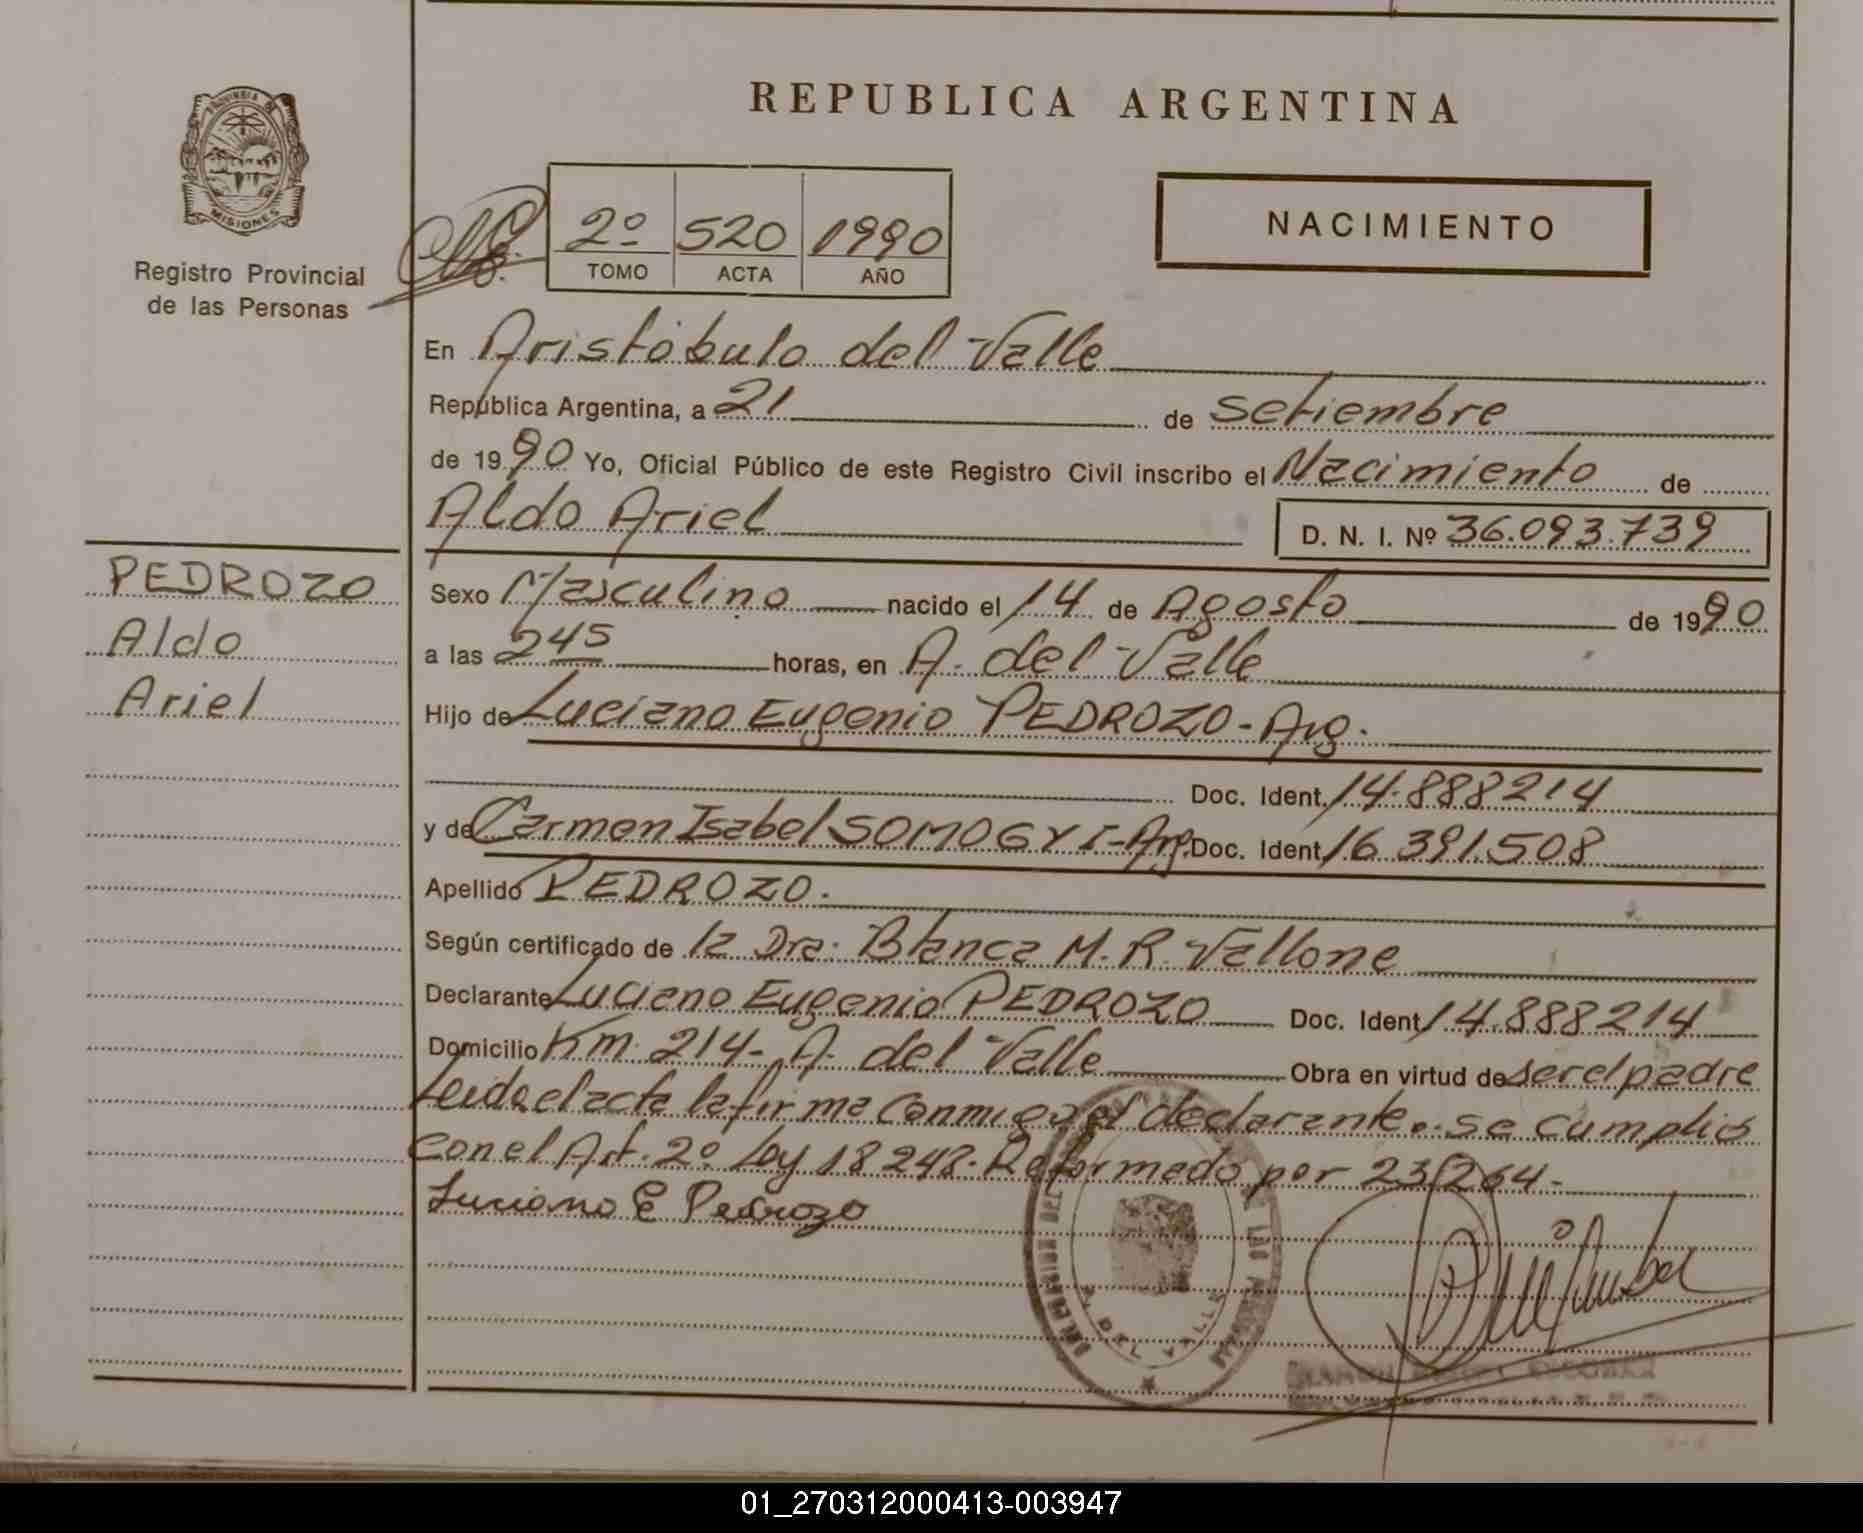 REPUBLICA ARGENTINA
PROVINCIA DE
MISIONES
Registro Provincial
de las Personas
2º 520 1990
TOMO ACTA AÑO
NACIMIENTO
En Aristóbulo del Valle
República Argentina, a 21 de Setiembre
de 1990 Yo, Oficial Público de este Registro Civil inscribo el Nacimiento de
Aldo Ariel D. N. I. Nº 36.093.739
PEDROZO
Aldo
Ariel
Sexo Masculino nacido el 14 de Agosto de 1990
a las 2 45 horas, en A. del Valle
Hijo de Luciano Eugenio PEDROZO - Arg.
Doc. Ident. 14.888214
y de Carmen Isabel SOMOGYI - Arg. Doc. Ident. 16.391.508
Apellido PEDROZO.
Según certificado de la Dra. Blanca M. R. Vallone
Declarante Luciano Eugenio PEDROZO Doc. Ident. 14.888214
Domicilio Km. 214 - A. del Valle Obra en virtud de ser el padre
Leida el acta la firma conmigo el declarante.. se cumplió
con el Art. 2º Ley 18248. Reformado por 23.264 -
Luciano E Pedrozo
A. DEL VALLE
01_270312000413-003947